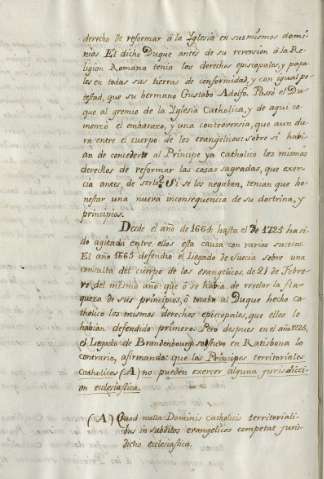 derecho de reformar á la Yglesia en sus mismos domi-
nios. El dicho Duque antes de su reversion á la Re-
ligion Romana tenia los derechos episcopales, y papa-
les en todas sus tierras de conformidad, y con igual po-
testad, que su hermano Gustabo Adolfo. Pasó el Du-
que al gremio de la Yglesia Catholica, y de aqui co-
menzó el embarazo, y una controversia, que aun du-
ra entre el cuerpo de los evangelicos sobre si habi-
an de concederle al Principe ya catholico los mismos
derechos de reformar las cosas sagradas, que exer-
cia antes de serlo. Y si se los negaban, tenian que ho-
nestar una nueva inconsequencia de su doctrina, y
principios.
Desde el año de 1664 hasta el de 1723 ha si-
do agitada entre ellos esta causa con varios sucesos.
El año 1665 defendia el Legado de Suecia sobre una
consulta del cuerpo de los evangelicos de 21 de Febre-
ro del mismo año que ó se habia de revelar la fla-
queza de sus principios, ó tenia al Duque hecho ca-
tholico los mismos derechos episcopales, que ellos le
habian defendido primero. Pero despues en el año 1723,
el Legado de Brandenbourg en Ratisbona lo
contrario, afirmando que los Principes territoriales
Catholicos (A) no pueden exercer alguna jurisdicci-
on eclesiastica.
(A) Quod nulla Dominis Catholicis territoriali-
bus in subditos evangelicos competat juris-
dictio eclesiastica.